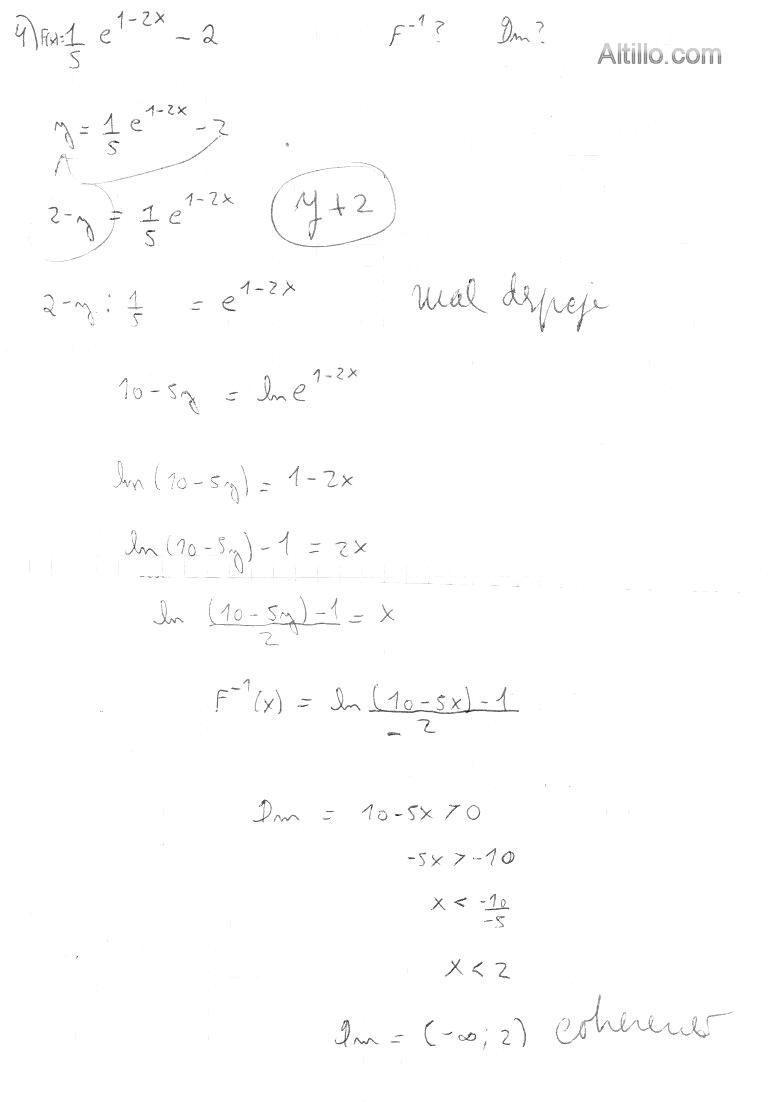 4) F(x)= 1/5 e^(1-2x) - 2 F^-1? Im?
Altillo.com
y = 1/5 e^(1-2x) - 2
2-y = 1/5 e^(1-2x) y+2
2-y : 1/5 = e^(1-2x) mal despeje
10-5y = ln e^(1-2x)
ln (10-5y) = 1-2x
ln (10-5y) - 1 = 2x
ln (10-5y)-1/2 = x
F^-1(x) = ln (10-5x)-1/-2
Dm = 10-5x > 0
-5x > -10
x < -10/-5
x < 2
Im = (-∞; 2) coherente